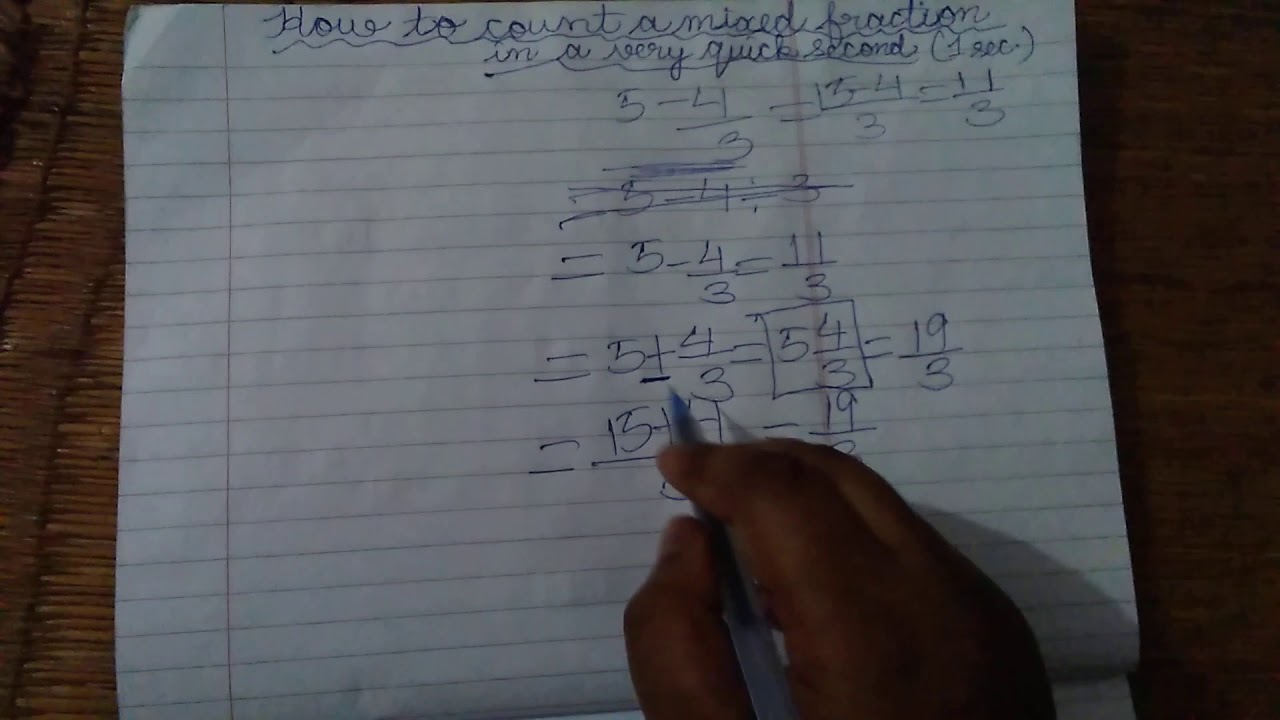 How to count a mixed fraction
in a very quick second (1 sec.)
5 - 4/3 = 15-4/3 = 11/3
= 5 - 4 ÷ 3
= 5 - 4/3 = 11/3
= 5 + 4/3 = 5 4/3 = 19/3
= 15+4 = 19